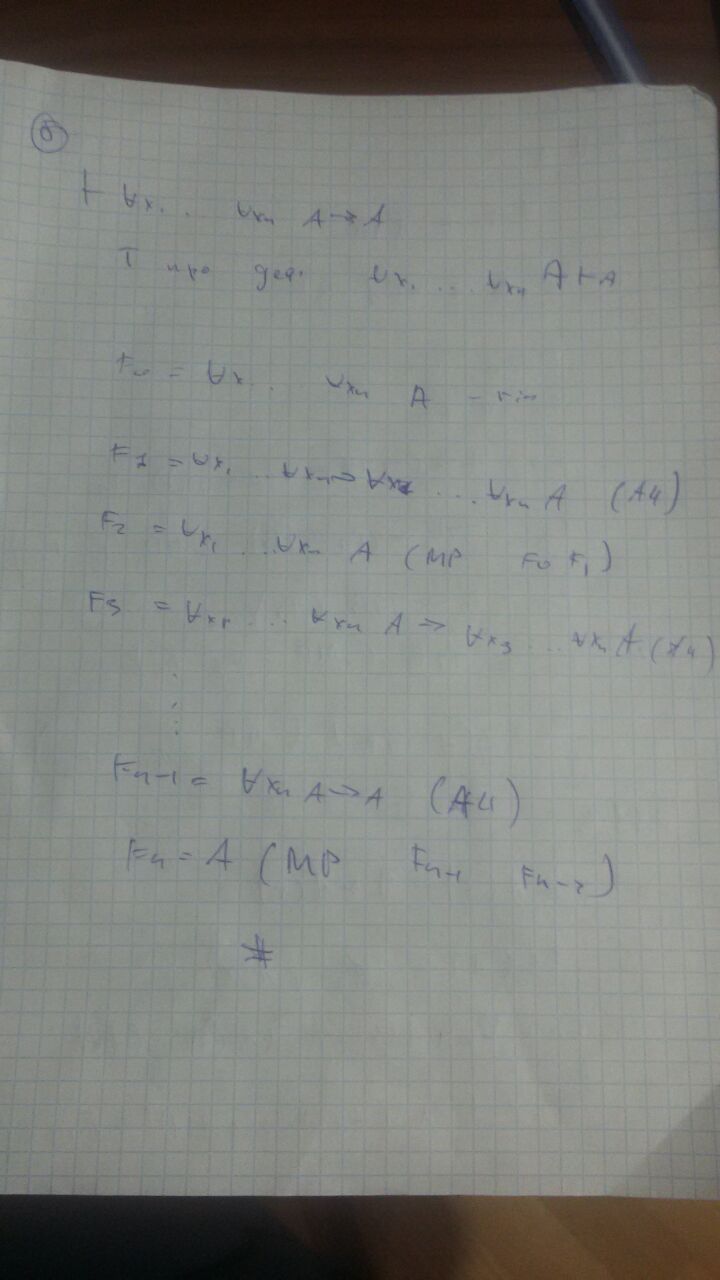 б
⊢ ∀x₁ .. ∀xₙ A → A
Т про дед: ∀x₁ ... ∀xₙ A ⊢ A
F₀ = ∀x₁ .. ∀xₙ A -
F₁ = ∀x₁ ... ∀xₙ → ∀x₂ ... ∀xₙ A (A4)
F₂ = ∀x₁ ... ∀xₙ A (MP F₀ F₁)
F₃ = ∀x₂ ... ∀xₙ A → ∀x₃ ... ∀xₙ A (A4)
⋮
Fₙ₋₁ = ∀xₙ A → A (A4)
Fₙ = A (MP Fₙ₋₁ Fₙ₋₂)
#